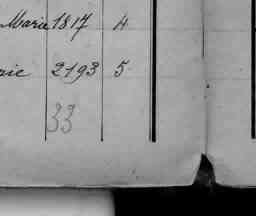 Marie 1817 4
2193 5
33